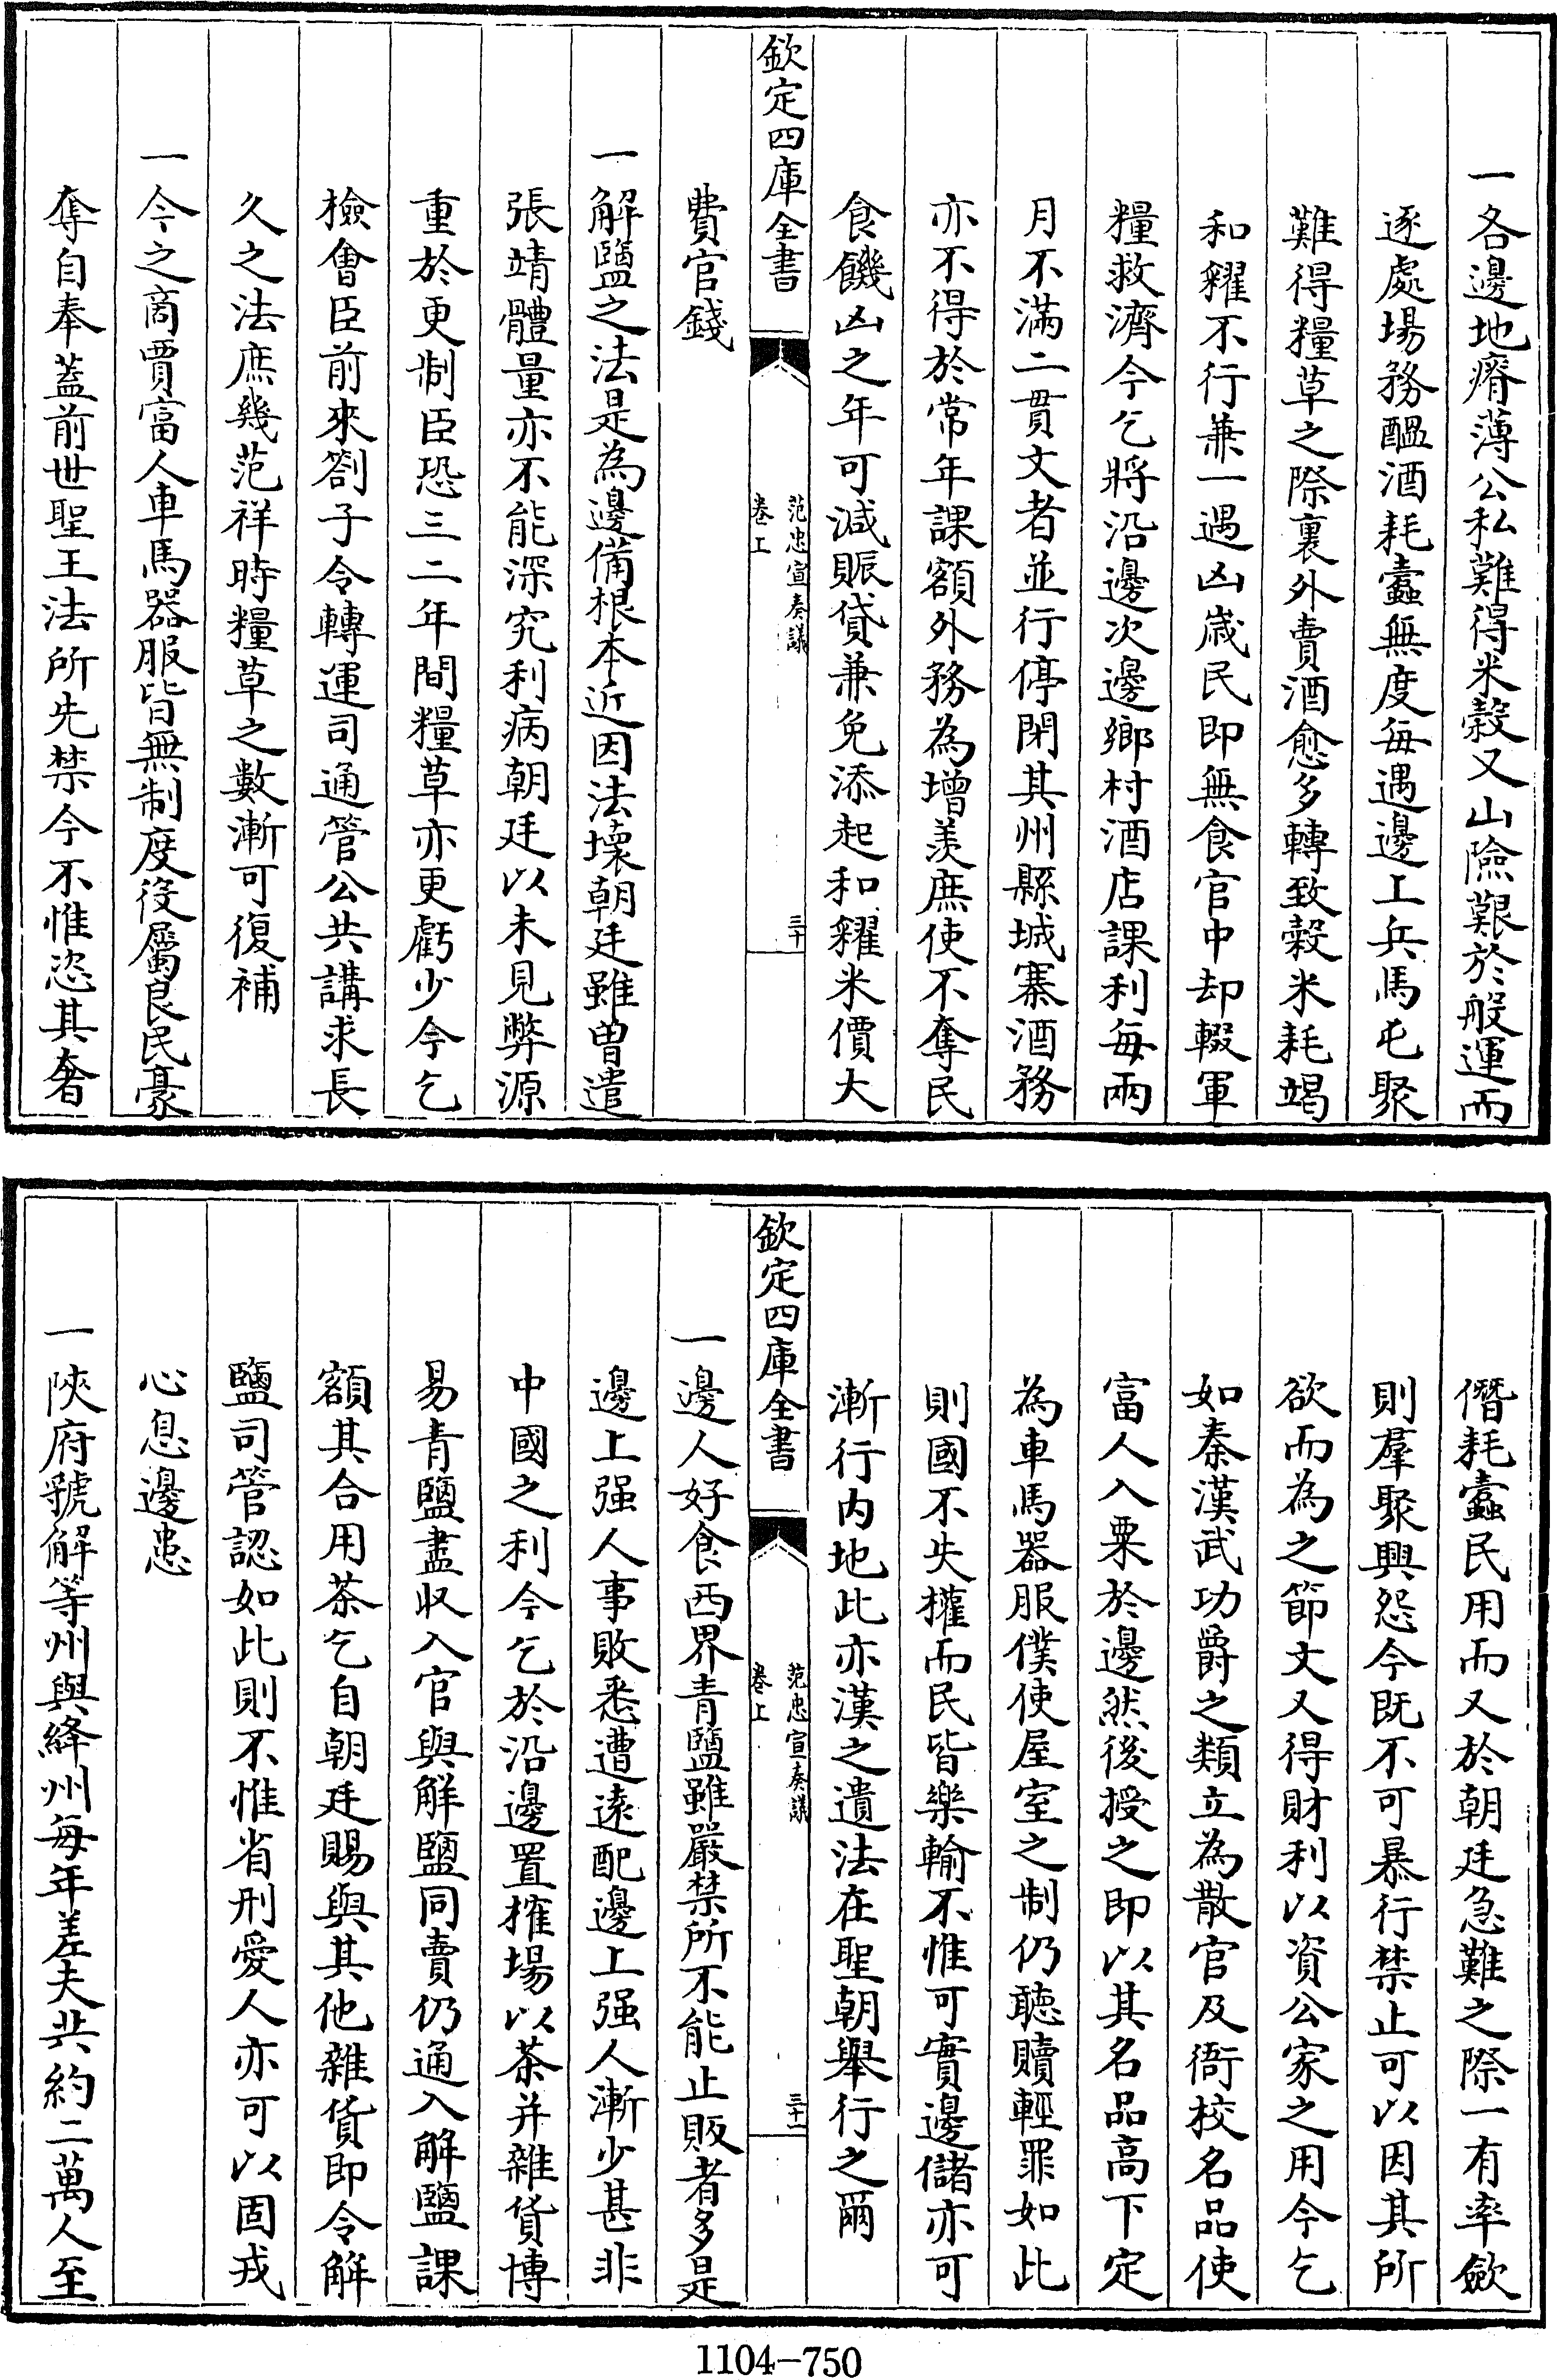 一各邊地瘠薄公私難得米穀又山險艱於般運而
逐處場務醖酒耗蠧無度每遇邊上兵馬屯聚
難得糧草之際裏外賣酒愈多轉致穀米耗竭
和糴不行兼一遇凶歳民即無食官中却輟軍
糧救濟今乞將沿邊次邊鄉村酒店課利每兩
月不滿二貫文者並行停閉其州縣城寨酒務
亦不得於常年課額外務為增羡庶使不奪民
食饑凶之年可減賑貸兼免添起和糴米價大
欽定四庫全書
范忠宣奏議
卷上
三十
費官錢
一解鹽之法是為邊備根本近因法壊朝廷雖曽遣
張靖體量亦不能深究利病朝廷以未見弊源
重於更制臣恐三二年間糧草亦更虧少今乞
撿會臣前來劄子令轉運司通管公共講求長
久之法庶幾范祥時糧草之數漸可復補
一今之商賈富人車馬器服皆無制度役屬良民豪
奪自奉蓋前世聖王法所先禁今不惟恣其奢
僭耗蠧民用而又於朝廷急難之際一有率斂
則羣聚興怨今既不可暴行禁止可以因其所
欲而為之節文又得財利以資公家之用今乞
如秦漢武功爵之類立為散官及衙校名品使
富人入粟於邊然後授之即以其名品高下定
為車馬器服僕使屋室之制仍聽贖輕罪如此
則國不失權而民皆樂輸不惟可實邊儲亦可
漸行内地此亦漢之遺法在聖朝舉行之爾
欽定四庫全書
范忠宣奏議
卷上
三十一
一邊人好食西界青鹽雖嚴禁所不能止販者多是
邊上强人事敗悉遭逺配邊上强人漸少甚非
中國之利今乞於沿邊置搉場以茶并雜貨博
易青鹽盡収入官與解鹽同賣仍通入解鹽課
額其合用茶乞自朝廷賜與其他雜貨即令解
鹽司管認如此則不惟省刑愛人亦可以固戎
心息邊患
一陜府虢解等州與絳州每年差夫共約二萬人至
1104-750